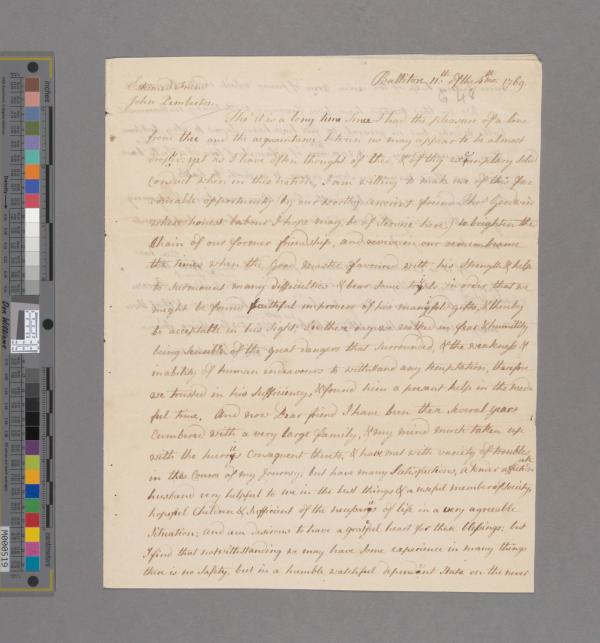 Ballitore 11th of the 4th mo. 1769
Esteemed Friend
John Pemberton
Tho' it is a long time since I had the pleasure of a line
from thee and the acquaintance between us may appear to be almost
dropt, yet as I have often thought of thee, & of thy exemplary solid
conduct when in this nation, I am willing to make use of this fa-
vourable opportunity by our worthy ancient friend
whose honest labour I hope may be of service here, to brighten the
Chain of our former friendship, and revive in our remembrance
the times when the Good master favoured with his strength & help
to surmount many difficulties & bear some tryals in order that we
might be found faithful improvers of his manifold gifts, & thereby
be acceptable in his sight. In those days we walked in fear & humility
being sensible of the great dangers that surrounded, & the weakness &
inability of human endeavours to withstand any temptation, therefore
we trusted in his sufficiency, & found him a present help in the need-
ful time. And now Dear friend I have been these several years
Cumbered with a very large family, & my mind much taken up
with the hurrys Consequent thereto, & have met with variety of troubles
in the Course of my Journey, but have many Satisfactions, a kind affectionate
husband very helpful to me in the best things & a useful member of Society,
hopeful Children & Sufficient of the necessarys of life in a very agreeable
Situation; and am desirous to have a grateful heart for these blessings: but
I find that notwithstanding we may have some experience in many things
there is no Safety, but in a humble watchful dependant State on the never
inches
centimeters
Density
Don Williams
M000519